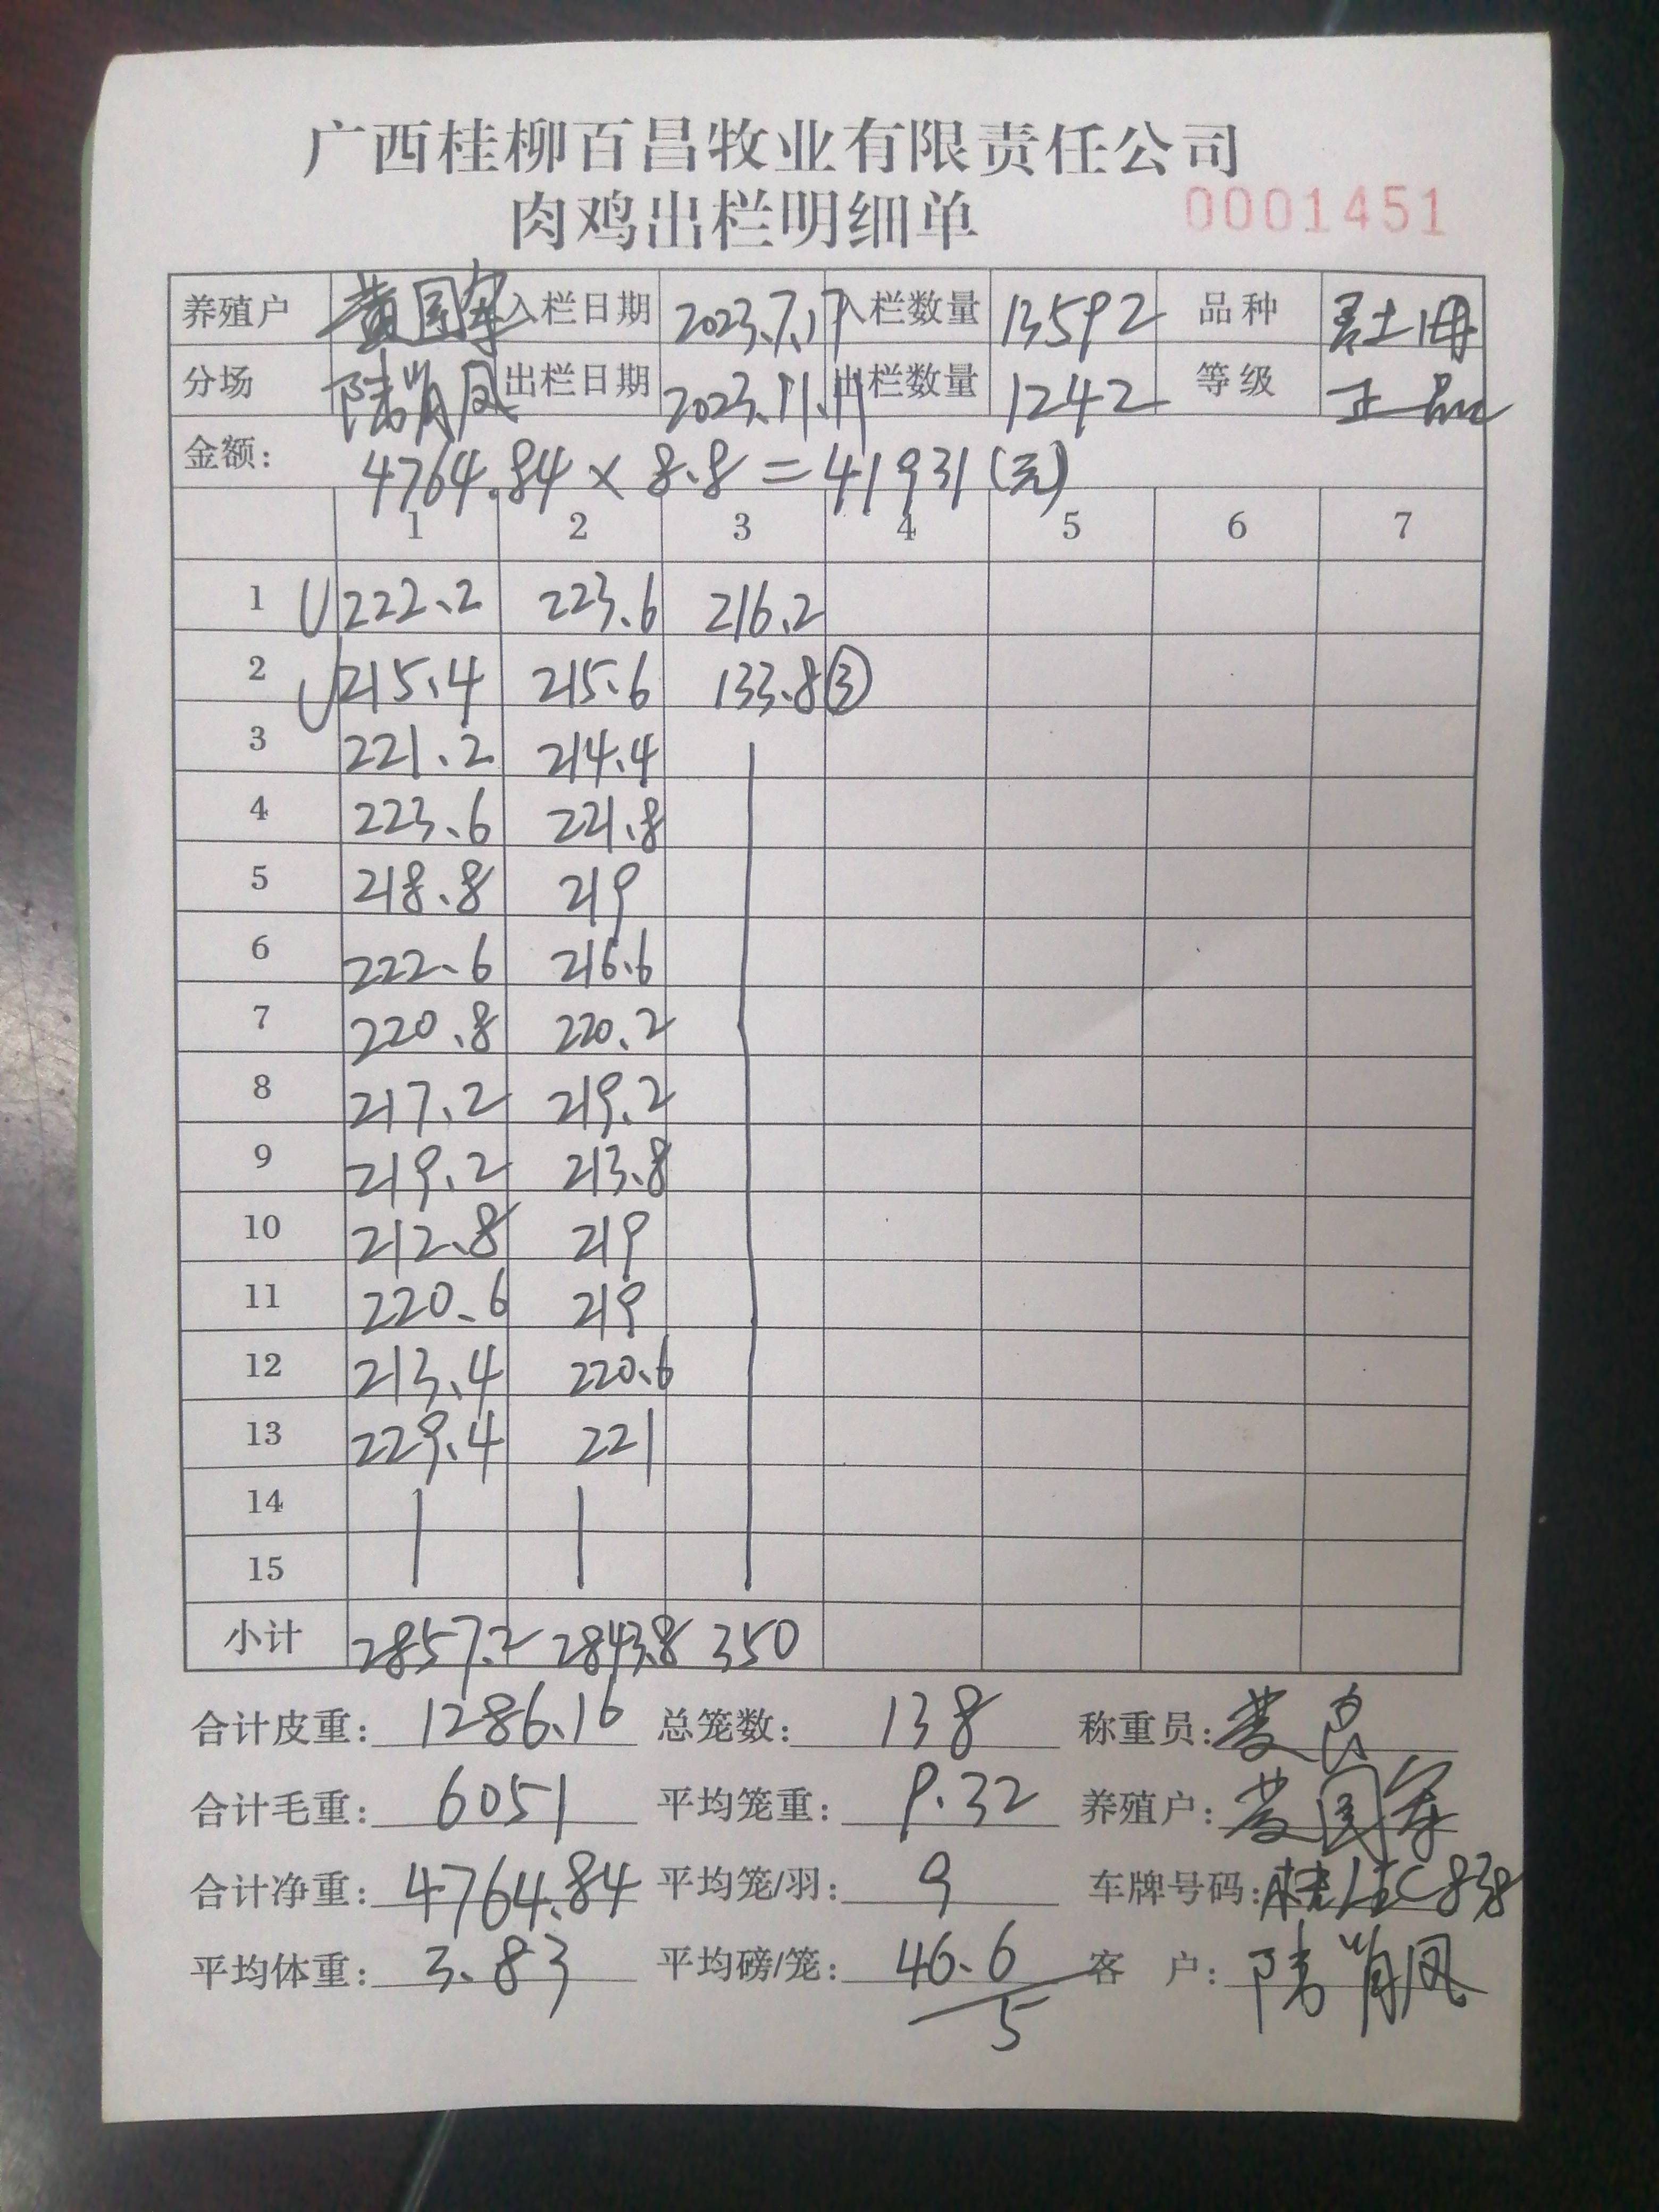 广西桂柳百昌牧业有限责任公司
肉鸡出栏明细单 0001451
养殖户 黄国军 入栏日期 2023.7.17 入栏数量 13592 品种
分场 陆肖凤 出栏日期 2023.11.11 出栏数量 1242 等级 正品
金额: 4764.84 × 8.8 = 41931(元)
1 2 3 4 5 6 7
1 222.2 223.6 216.2
2 215.4 215.6 133.8 ③
3 221.2 214.4
4 223.6 221.8
5 218.8 219
6 222.6 216.6
7 220.8 220.2
8 217.2 219.2
9 219.2 213.8
10 212.8 219
11 220.6 219
12 213.4 220.6
13 229.4 221
14
15
小计 2857.2 2843.8 350
合计皮重: 1286.16 总笼数: 138 称重员:
合计毛重: 6051 平均笼重: 9.32 养殖户: 黄国军
合计净重: 4764.84 平均笼/羽: 9 车牌号码:
平均体重: 3.83 平均磅/笼: 46.6 客 户: 陆肖凤
5